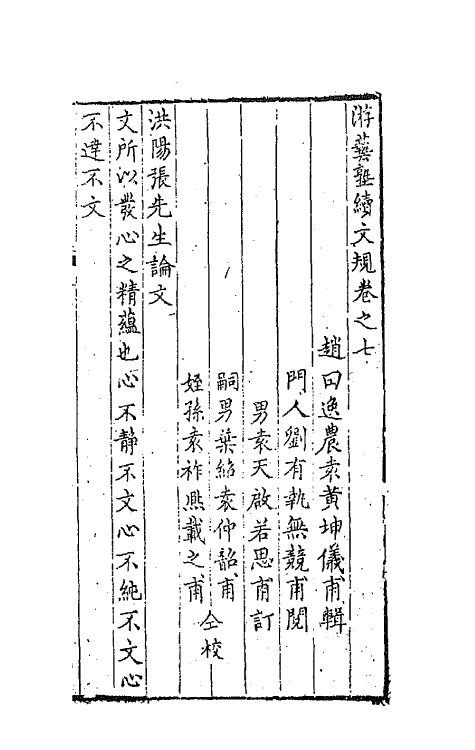 游藝塾續文規卷之七
趙田逸農袁黃坤儀甫輯
門人劉有執無競甫閱
男袁天啟若思甫訂
嗣男葉紹袁仲韶甫
姪孫袁祚熙載之甫
仝校
洪陽張先生論文
文所以發心之精蘊也心不靜不文心不純不文心
不達不文